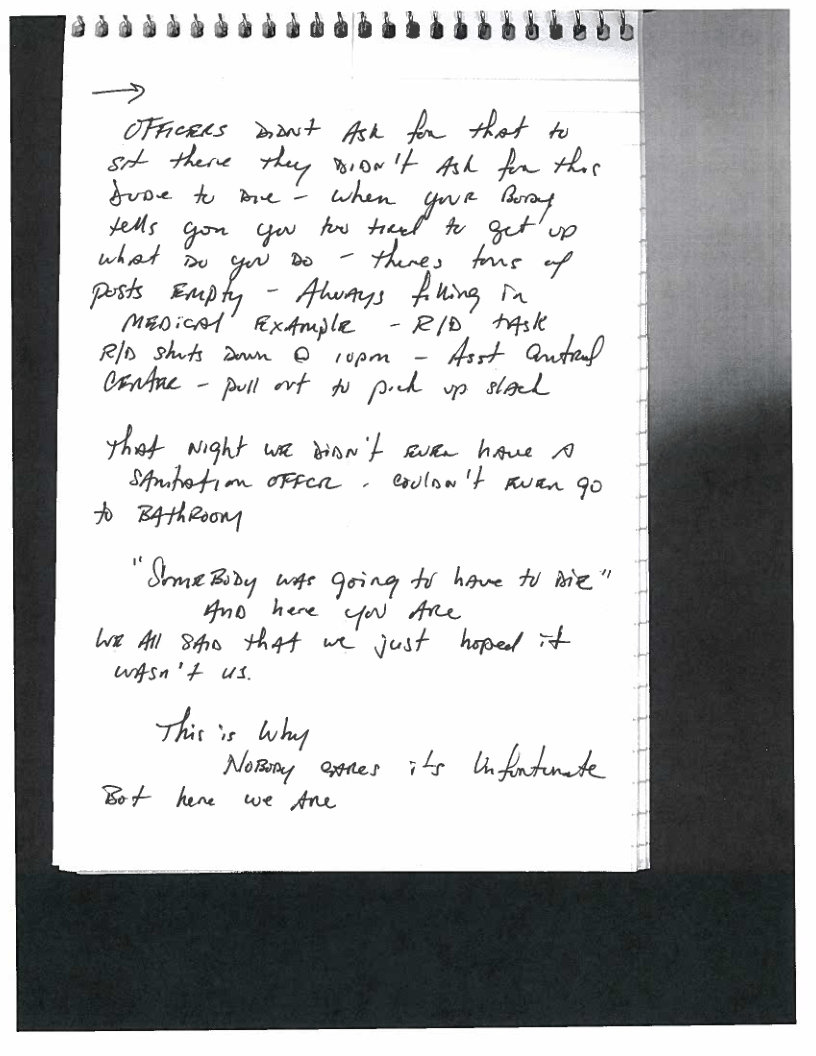 →
OFFICERS DIDNT ASK for that to
sit there they DIDN'T ASK for this
DUDE to DIE - when your BODY
tells you you too tired to get up
what DO you DO - theres tons of
posts EMPTY - Always filling in
MEDICAL EXAMPLE - R/D TASK
R/D shuts Down @ 10pm - Asst Control
CENTER - pull out to pick up slack
That Night WE DIDN'T EVEN have A
SANITATION OFFCR. COULDN'T EVEN go
to BATHROOM
"SOMEBODY WAS going to have to DIE"
AND here you ARE
WE All SAID that we just hoped it
WASN'T US.
This is Why
NOBODY CARES its Unfortunate
But here we Are